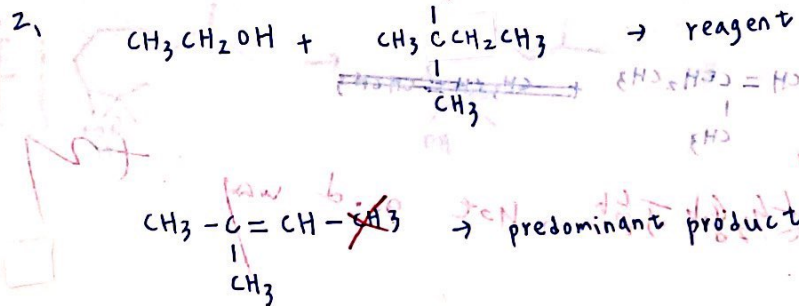 2,
CH3CH2OH + CH3 C CH2CH3 → reagent
CH3
CH3 - C = CH - CH3 → predominant product
CH3